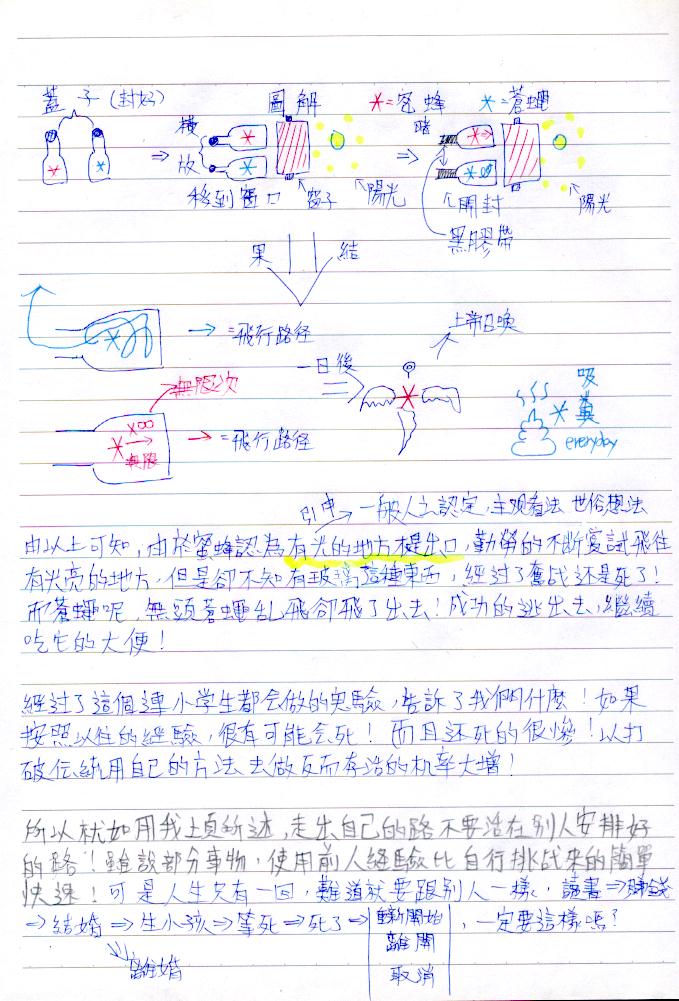 蓋子(封好)
圖解
*=蜜蜂
*=蒼蠅
橫放
移到窗口
窗子
陽光
暗
開封
黑膠帶
陽光
結果
=飛行路徑
無限次
∞
無限
=飛行路徑
一日後
上帝召喚
吸糞
everyday
引申
一般人之認定,主观看法 世俗想法
由以上可知,由於蜜蜂認為有光的地方才是出口,勤勞的不断嘗試飛往
有光亮的地方,但是卻不知有玻璃這種東西,經过了奮战还是死了!
而蒼蠅呢,無頭蒼蠅乱飛卻飛了出去!成功的逃出去,繼續
吃它的大便!
經过了這個連小学生都会做的实驗,告訴了我們什麼!如果
按照以往的經驗,很有可能会死!而且还死的很慘!以打
破传統用自己的方法去做反而存活的机率大增!
所以就如用我上頁所述,走出自己的路不要活在別人安排好
的路!雖說部分事物,使用前人經驗比自行挑战來的簡單
快速!可是人生只有一回,難道就要跟別人一樣,讀書⇒賺錢
⇒結婚⇒生小孩⇒等死⇒死了⇒
重新開始
離開
取消
,一定要這樣嗎?
離婚